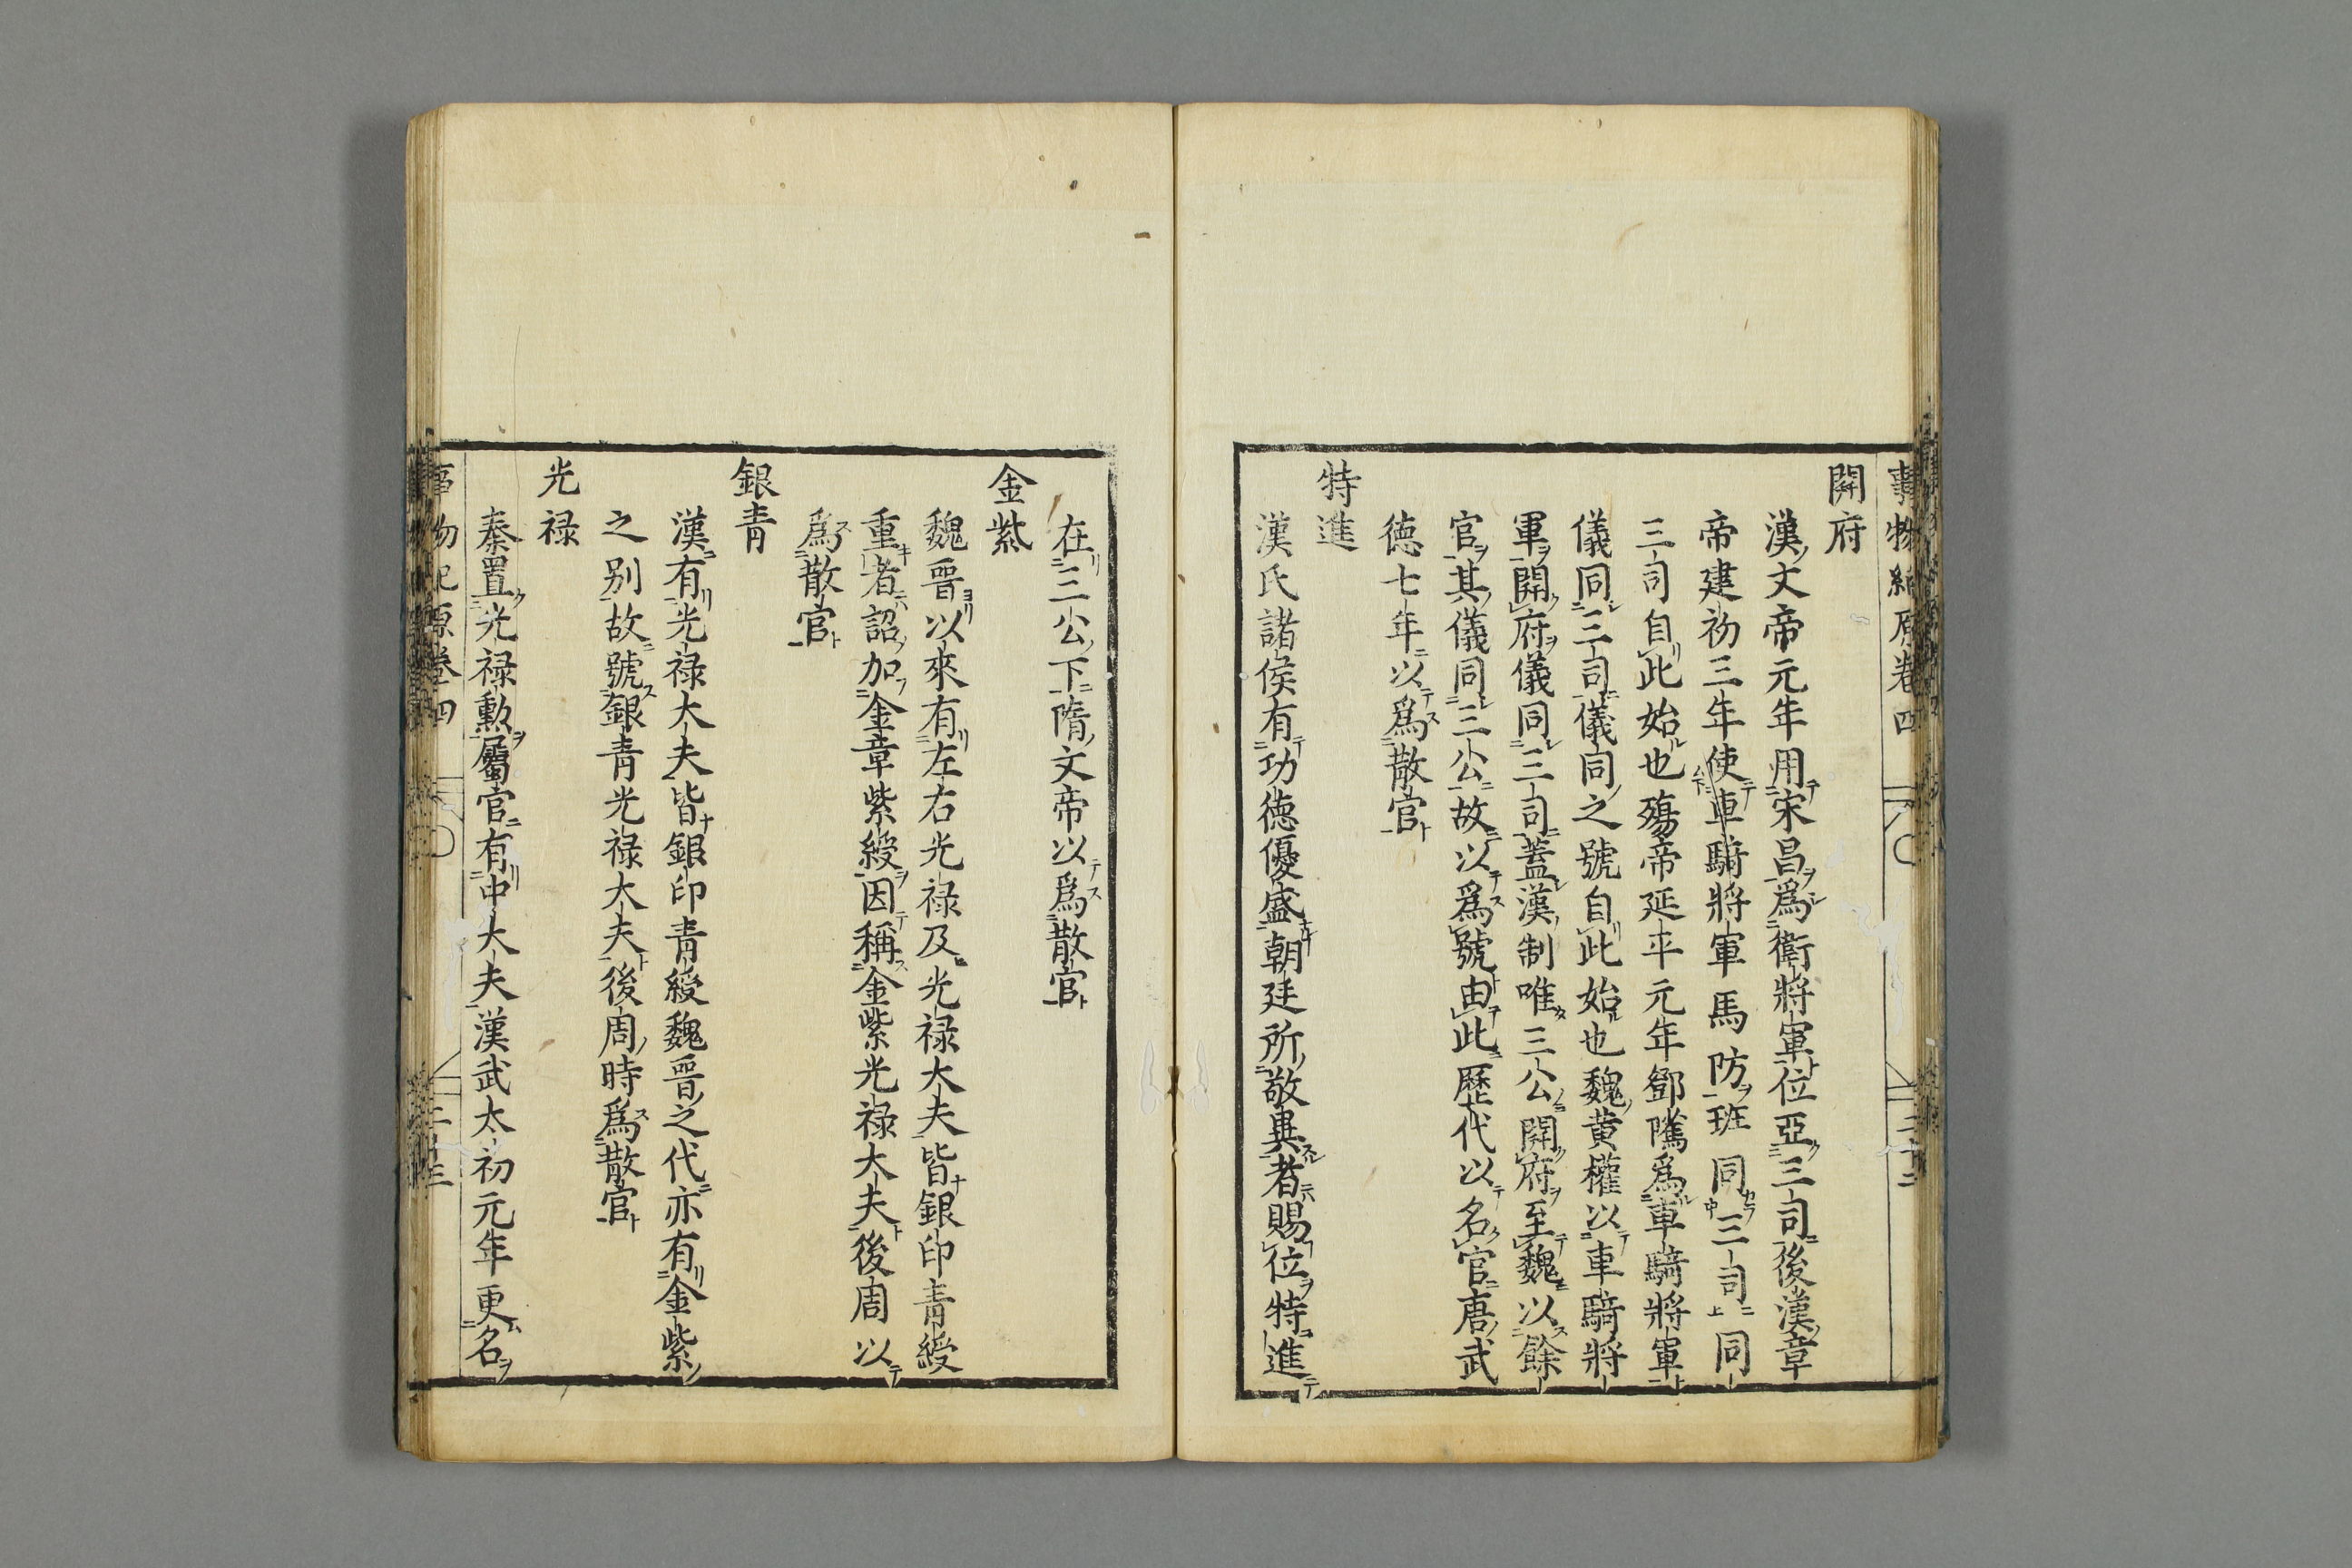 事物紀原卷四
開府
漢文帝元年用宋昌爲衛將軍位亞三司後漢章
帝建初三年使車騎將軍馬防班同三司同
三司自此始也殤帝延平元年鄧隲爲車騎將軍
儀同三司儀同之號自此始也魏黄權以車騎將
軍開府儀同三司蓋漢制唯三公開府至魏以餘
官其儀同三公故以爲號由此歴代以名官唐武
徳七年以爲散官
特進
漢氏諸侯有功徳優盛朝廷所敬異者賜位特進
在三公下隋文帝以爲散官
金紫
魏晋以來有左右光禄及光禄大夫皆銀印青綬
重者詔加金章紫綬因稱金紫光禄大夫後周以
爲散官
銀青
漢有光禄大夫皆銀印青綬魏晋之代亦有金紫
之別故號銀青光禄大夫後周時爲散官
光禄
秦置光禄勲屬官有中大夫漢武太初元年更名
事物紀原卷四